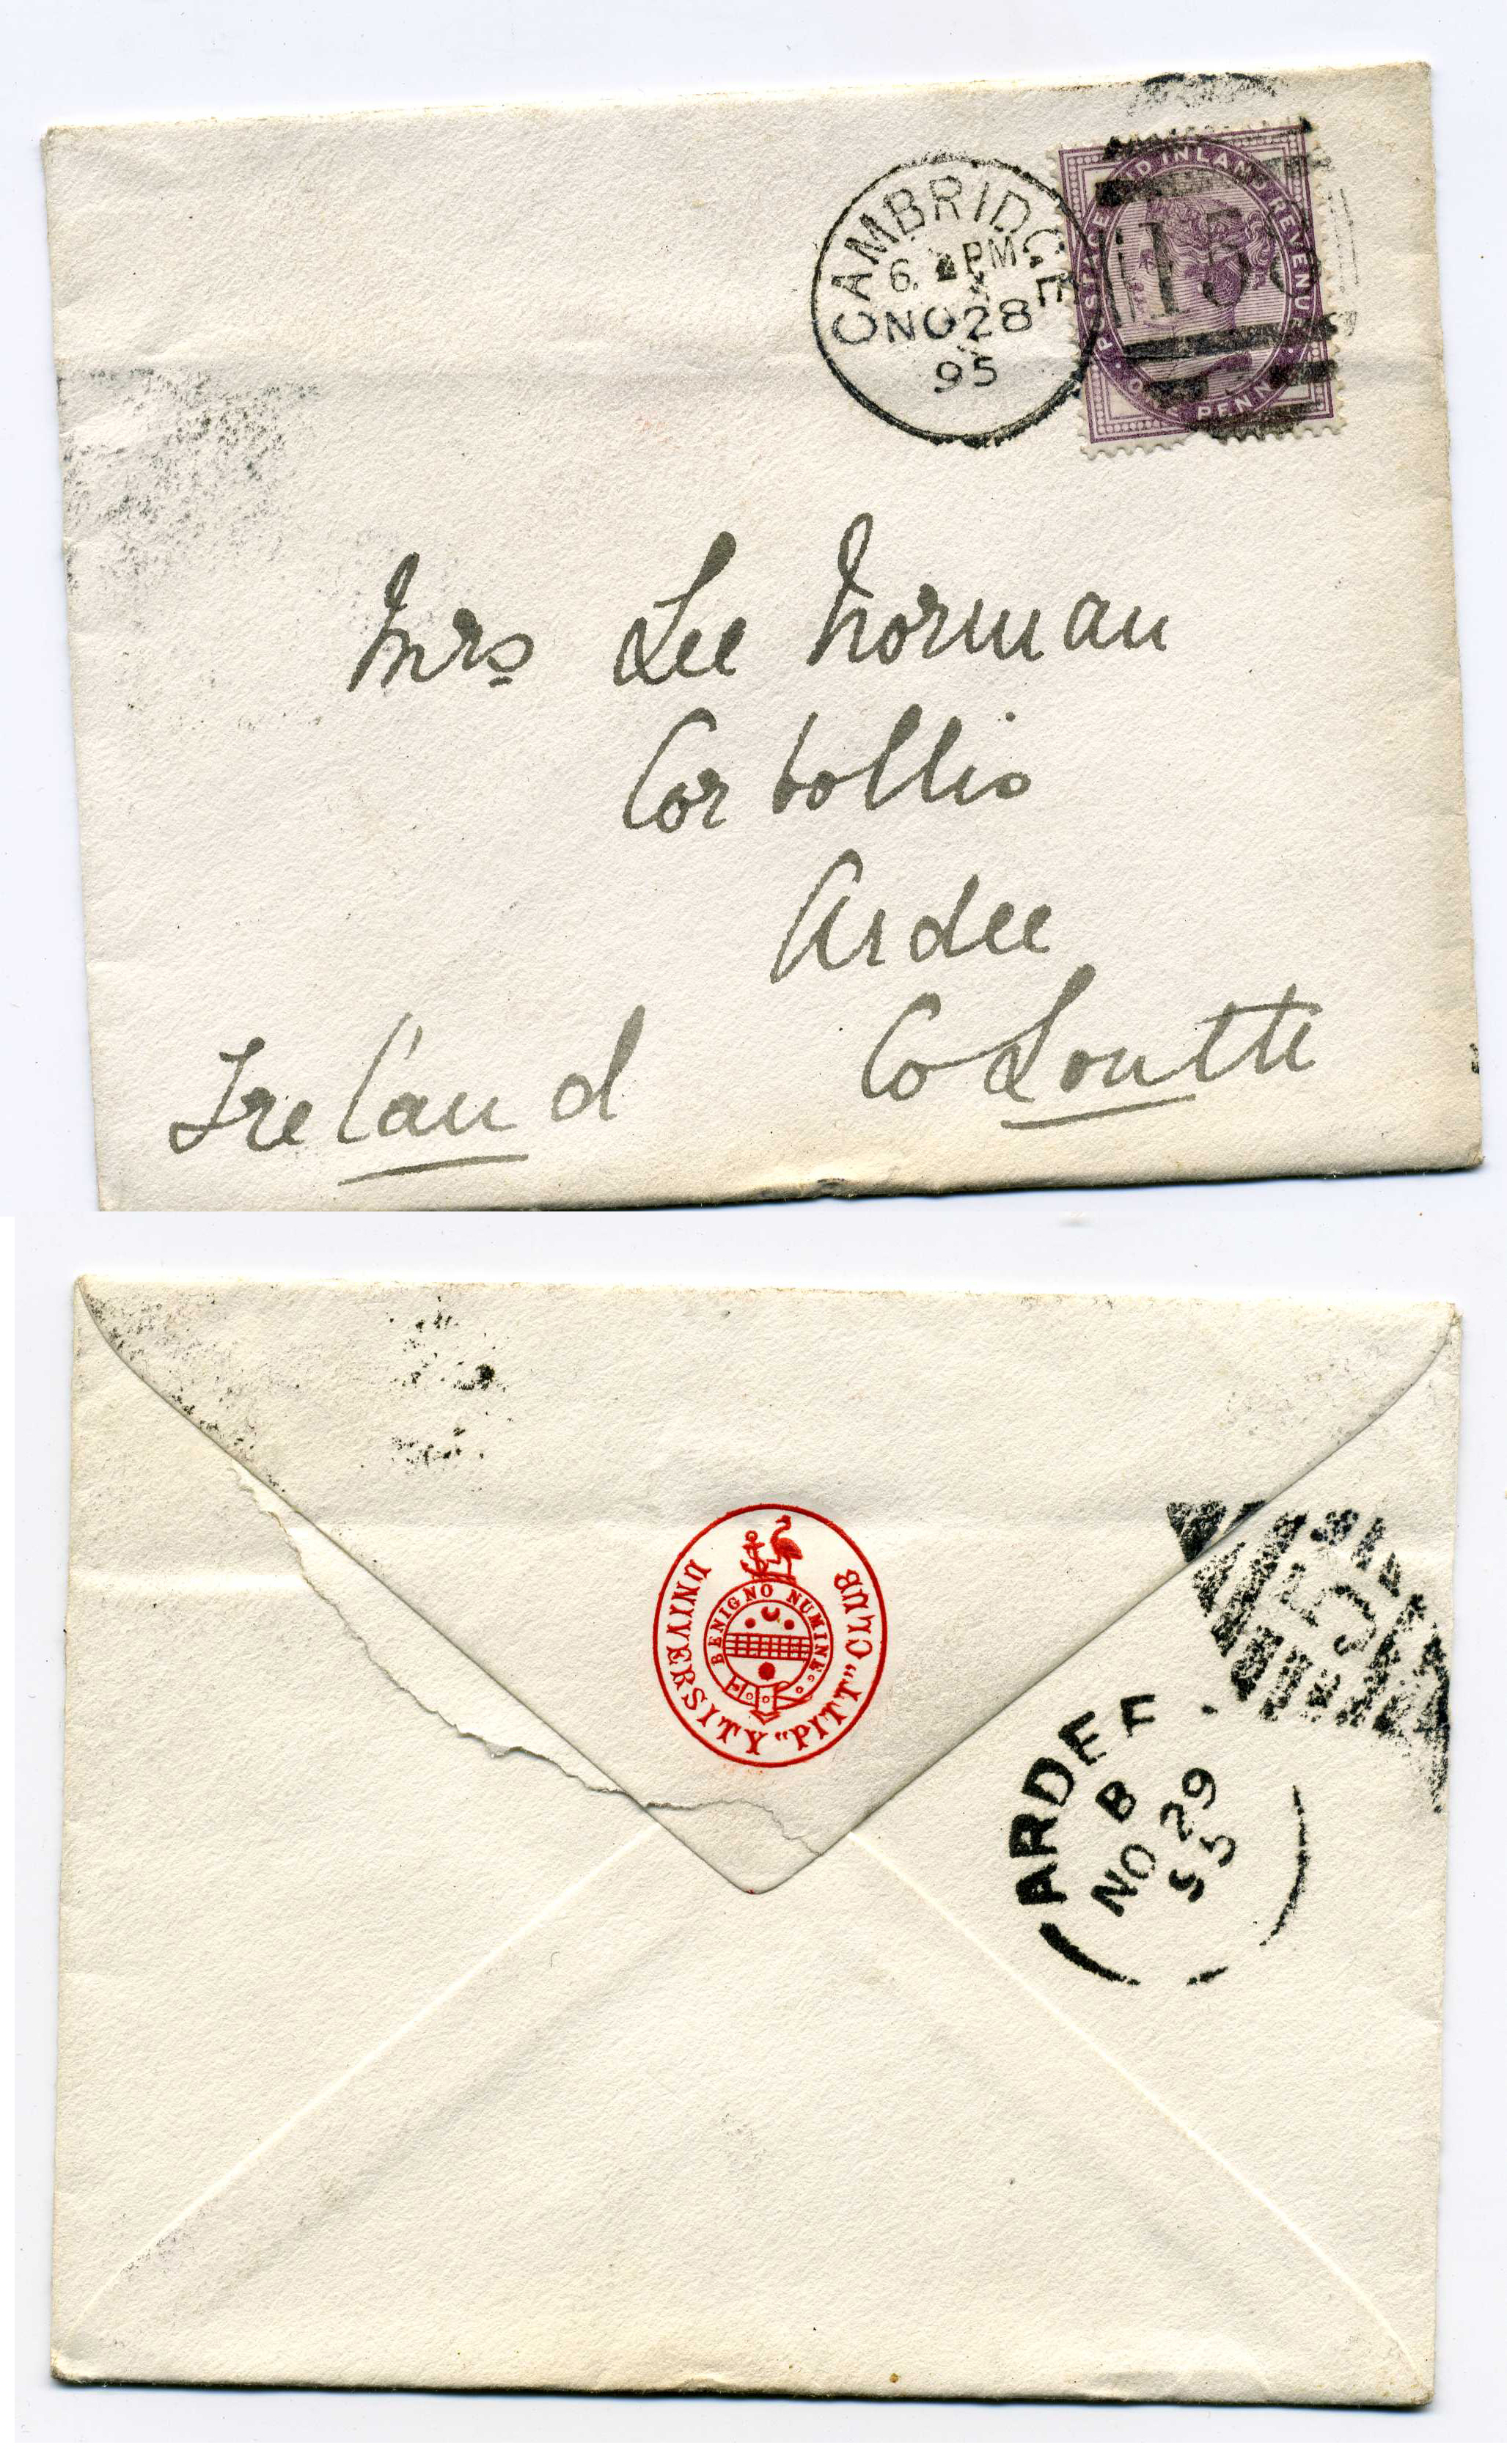 CAMBRIDGE
6. PM
NO 28
95
POSTAGE AND INLAND REVENUE
ONE PENNY
Mrs Lee Norman
Corbollis
Ardee
Co Louth
Ireland
UNIVERSITY "PITT" CLUB
BENIGNO NUMINE
5
ARDEE
B
NO 29
95